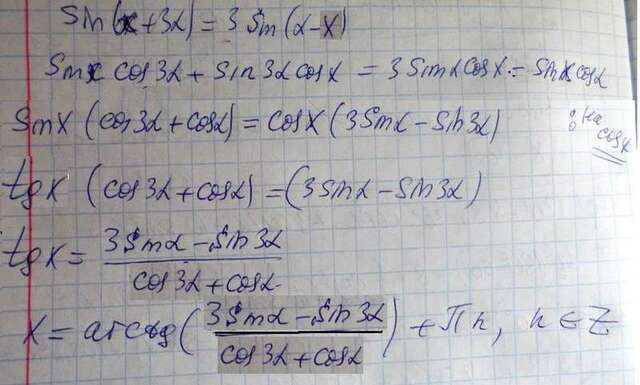 sin(x+3α) = 3 sin(α-x)
sinx cos3α + sin3α cosx = 3 sinα cosx - sinx cosα
sinx (cos3α + cosα) = cosx (3 sinα - sin3α) : на cosx
tgx (cos3α + cosα) = (3 sinα - sin3α)
tgx = (3 sinα - sin3α) / (cos3α + cosα)
x = arctg((3 sinα - sin3α) / (cos3α + cosα)) + πn, n ∈ Z